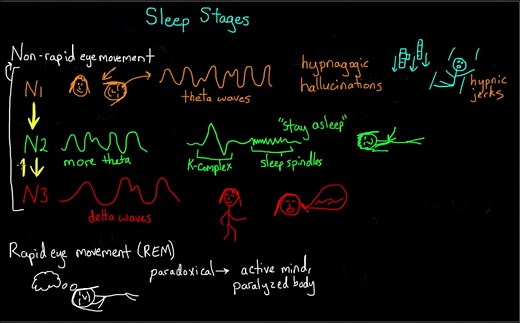 Sleep Stages
Non-rapid eye movement
N1
theta waves
hypnagogic
hallucinations
hypnic
jerks
N2
more theta
K-Complex
"stay asleep"
sleep spindles
N3
delta waves
Rapid eye movement (REM)
paradoxical → active mind,
paralyzed body